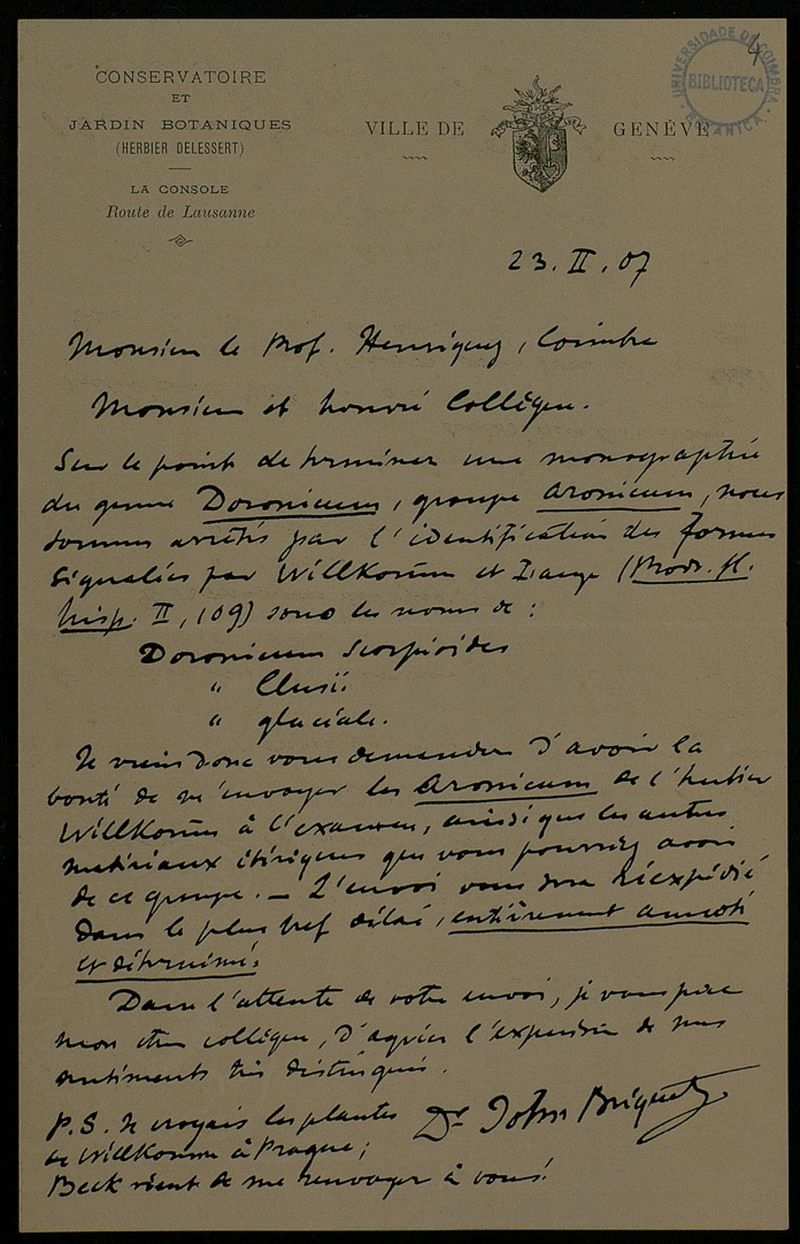 4
UNIVERSIDADE DE COIMBRA
BIBLIOTECA
BOTANICA
CONSERVATOIRE
ET
JARDIN BOTANIQUES
(HERBIER DELESSERT)
LA CONSOLE
Route de Lausanne
VILLE DE GENÈVE
23. II. 07
Monsieur le Prof. Henriquez, Coimbra
Monsieur et honoré Collègue.
Sur le point de terminer une monographie
du genre Doronicum, groupe Aronicum, nous
sommes arrêtés par l'identification des formes
signalées par Willkomm et Lange (Prodr. fl.
hisp. II, 109) sous les noms de :
Doronicum scorpioides
" Clusii
" glaciale.
Je viens donc vous demander d'avoir la
bonté de m'envoyer les Aronicum de l'herbier
Willkomm à l'examen, ainsi que les autres
matériaux ibériques que vous pourriez avoir
de ce groupe. — L'envoi vous sera réexpédié
dans le plus bref délai, entièrement annoté
et déterminé.
Dans l'attente de votre envoi, je vous prie
mon cher collègue, d'agréer l'expression de mes
sentiments très distingués.
Dr. John Briquet
P.S. Je croyais les plantes
de Willkomm à Prague;
Beck vient de me renvoyer à vous!